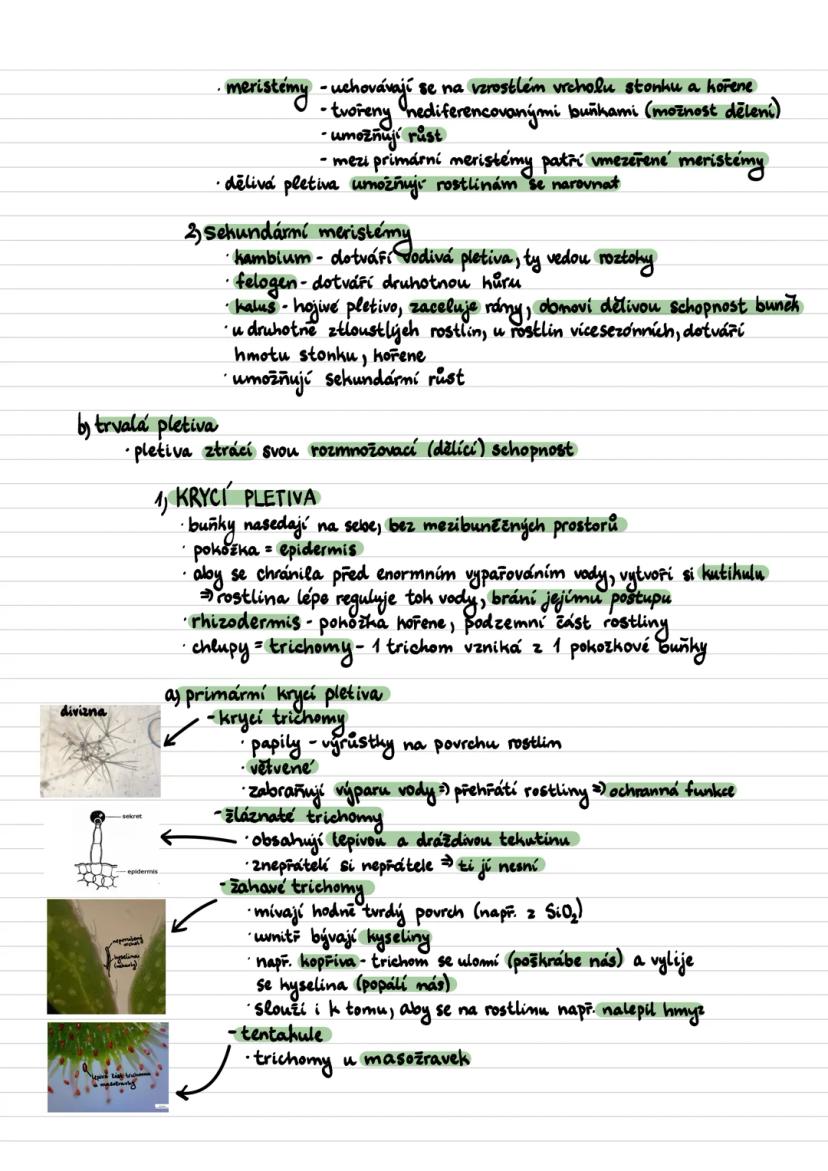 · meristémy - uchovávají se na vzrostlém vrcholu stonku a kořene
- tvořeny nediferencovanými buňkami (možnost dělení)
- umožňují růst
- mezi primární meristémy patří vmezeřené meristémy
· dělivá pletiva umožňují rostlinám se narovnat
2) sekundární meristémy
· kambium - dotváří vodivá pletiva, ty vedou roztoky
· felogen - dotváří druhotnou kůru
· kalus - hojivé pletivo, zaceluje rány, obnoví dělivou schopnost buněk
· u druhotně ztloustlých rostlin, u rostlin vícesezónních, dotváří
hmotu stonku, kořene
· umožňují sekundární růst
b) trvalá pletiva
· pletiva ztrácí svou rozmnožovací (dělící) schopnost
1) KRYCÍ PLETIVA
· buňky nasedají na sebe, bez mezibuněčných prostorů
· pokožka = epidermis
· aby se chránila před enormním vypařováním vody, vytvoří si kutikulu
⇒ rostlina lépe reguluje tok vody, brání jejímu postupu
· rhizodermis - pokožka kořene, podzemní část rostliny
· chlupy = trichomy - 1 trichom vzniká z 1 pokožkové buňky
a) primární krycí pletiva
divizna
- krycí trichomy
· papily - výrůstky na povrchu rostlin
· větvené
· zabraňují výparu vody ⇒ přehřátí rostliny ⇒ ochranná funkce
- žláznaté trichomy
sekret
· obsahují lepivou a dráždivou tekutinu
· znepřátelí si nepřátele ⇒ ti jí nesní
epidermis
- žahavé trichomy
· mívají hodně tvrdý povrch (např. z SiO₂)
· uvnitř bývají kyseliny
· např. kopřiva - trichom se ulomí (poškrábe nás) a vylije
se kyselina (popálí nás)
· slouží i k tomu, aby se na rostlinu např. nalepil hmyz
neporušený
kyselina
- tentakule
· trichomy u masožravek
lepivá část trichomu
masožravky